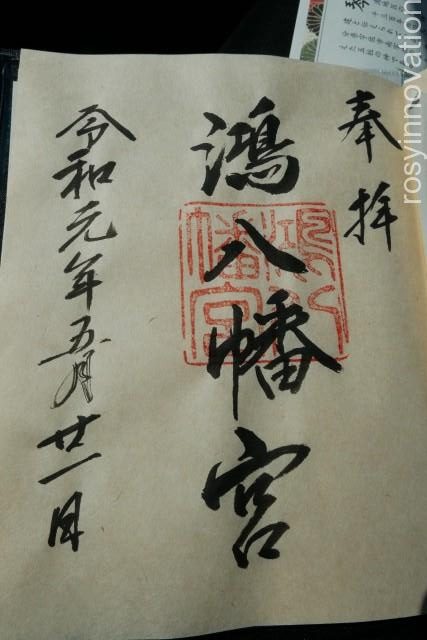 奉拝
鴻八幡宮
令和元年五月廿一日
rosyinnovation